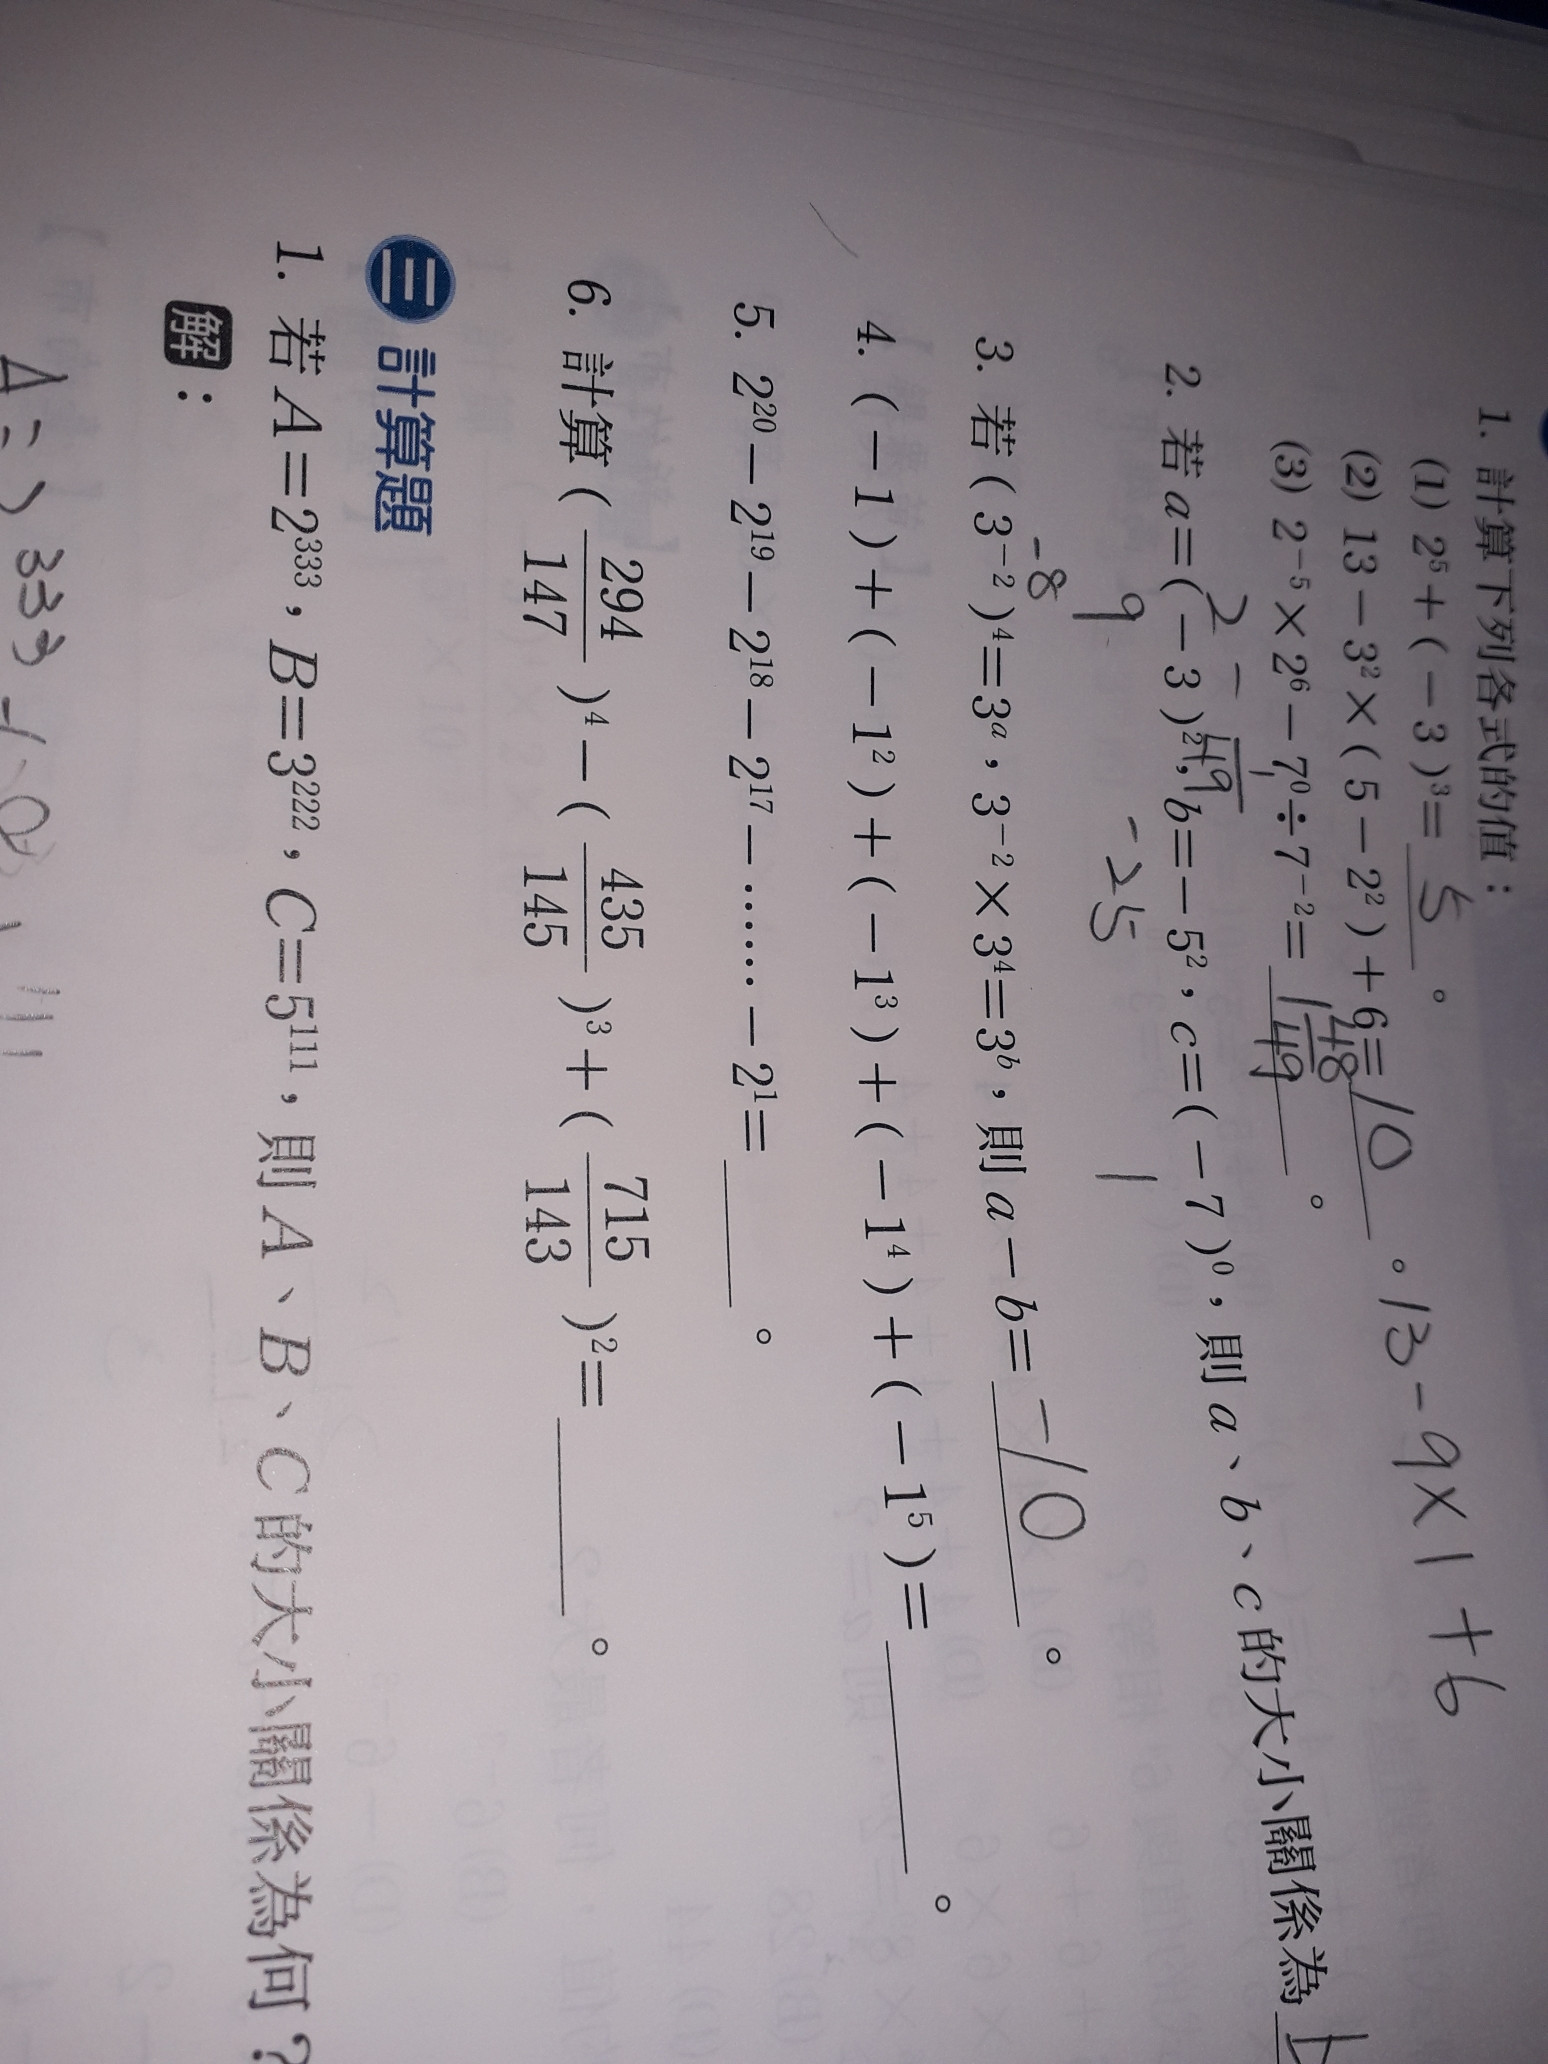 1. 計算下列各式的值：
(1) 2⁵＋(－3)³＝ 5 。
(2) 13－3²×(5－2²)＋6＝ 10 。 13－9×1＋6
(3) 2⁻⁵×2⁶－7⁰÷7⁻²＝ 1 48/49 。
2 － 1/49
2. 若 a＝(－3)², b＝－5², c＝(－7)⁰, 則 a、b、c 的大小關係為
9 －25 1
3. 若(3⁻²)⁴＝3ᵃ, 3⁻²×3⁴＝3ᵇ, 則 a－b＝ －10 。
－8
4. (－1)＋(－1²)＋(－1³)＋(－1⁴)＋(－1⁵)＝ 。
5. 2²⁰－2¹⁹－2¹⁸－2¹⁷－……－2¹＝ 。
6. 計算(294/147)⁴－(435/145)³＋(715/143)²＝ 。
三 計算題
1. 若 A＝2³³³, B＝3²²², C＝5¹¹¹, 則 A、B、C 的大小關係為何？
解：